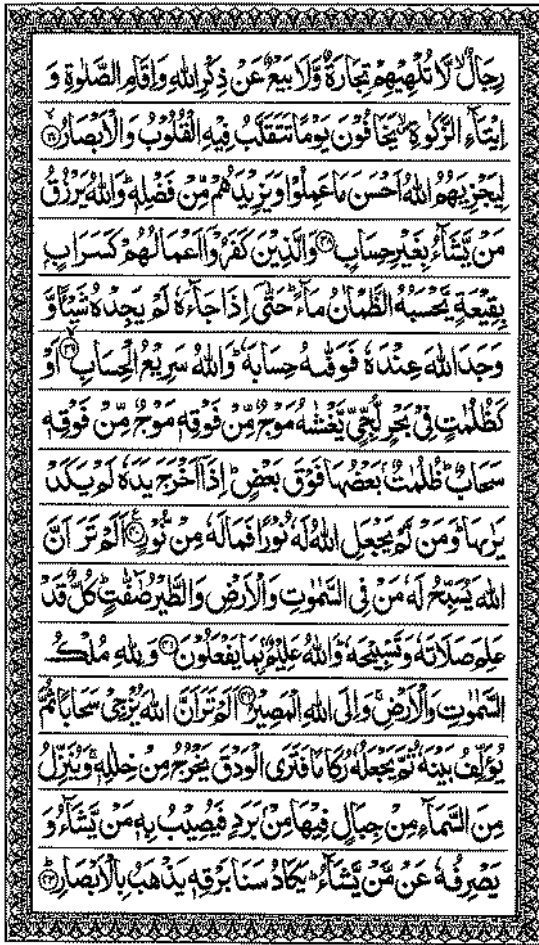 رِجَالٌ ۙ لَّا تُلْهِيْهِمْ تِجَارَةٌ وَّلَا بَيْعٌ عَنْ ذِكْرِ اللّٰهِ وَاِقَامِ الصَّلٰوةِ وَ
اِيْتَآءِ الزَّكٰوةِ ۙ يَخَافُوْنَ يَوْمًا تَتَقَلَّبُ فِيْهِ الْقُلُوْبُ وَالْاَبْصَارُ ۙ
لِيَجْزِيَهُمُ اللّٰهُ اَحْسَنَ مَا عَمِلُوْا وَيَزِيْدَهُمْ مِّنْ فَضْلِهٖ ؕ وَاللّٰهُ يَرْزُقُ
مَنْ يَّشَآءُ بِغَيْرِ حِسَابٍ ﴿۳۸﴾ وَالَّذِيْنَ كَفَرُوْۤا اَعْمَالُهُمْ كَسَرَابٍۭ
بِقِيْعَةٍ يَّحْسَبُهُ الظَّمْاٰنُ مَآءً ؕ حَتّٰۤى اِذَا جَآءَهٗ لَمْ يَجِدْهُ شَيْـًٔا وَّ
وَجَدَ اللّٰهَ عِنْدَهٗ فَوَفّٰىهُ حِسَابَهٗ ؕ وَاللّٰهُ سَرِيْعُ الْحِسَابِ ﴿۳۹﴾ۙ اَوْ
كَظُلُمٰتٍ فِيْ بَحْرٍ لُّجِّيٍّ يَّغْشٰىهُ مَوْجٌ مِّنْ فَوْقِهٖ مَوْجٌ مِّنْ فَوْقِهٖ
سَحَابٌ ؕ ظُلُمٰتٌۢ بَعْضُهَا فَوْقَ بَعْضٍ ؕ اِذَاۤ اَخْرَجَ يَدَهٗ لَمْ يَكَدْ
يَرٰىهَا ؕ وَمَنْ لَّمْ يَجْعَلِ اللّٰهُ لَهٗ نُوْرًا فَمَا لَهٗ مِنْ نُّوْرٍ ﴿۴۰﴾ اَلَمْ تَرَ اَنَّ
اللّٰهَ يُسَبِّحُ لَهٗ مَنْ فِى السَّمٰوٰتِ وَالْاَرْضِ وَالطَّيْرُ صٰٓفّٰتٍ ؕ كُلٌّ قَدْ
عَلِمَ صَلَاتَهٗ وَتَسْبِيْحَهٗ ؕ وَاللّٰهُ عَلِيْمٌۢ بِمَا يَفْعَلُوْنَ ﴿۴۱﴾ وَلِلّٰهِ مُلْكُ
السَّمٰوٰتِ وَالْاَرْضِ ۚ وَاِلَى اللّٰهِ الْمَصِيْرُ ﴿۴۲﴾ اَلَمْ تَرَ اَنَّ اللّٰهَ يُزْجِيْ سَحَابًا ثُمَّ
يُؤَلِّفُ بَيْنَهٗ ثُمَّ يَجْعَلُهٗ رُكَامًا فَتَرَى الْوَدْقَ يَخْرُجُ مِنْ خِلٰلِهٖ ۚ وَيُنَزِّلُ
مِنَ السَّمَآءِ مِنْ جِبَالٍ فِيْهَا مِنْۢ بَرَدٍ فَيُصِيْبُ بِهٖ مَنْ يَّشَآءُ وَ
يَصْرِفُهٗ عَنْ مَّنْ يَّشَآءُ ؕ يَكَادُ سَنَا بَرْقِهٖ يَذْهَبُ بِالْاَبْصَارِ ﴿۴۳﴾ؕ